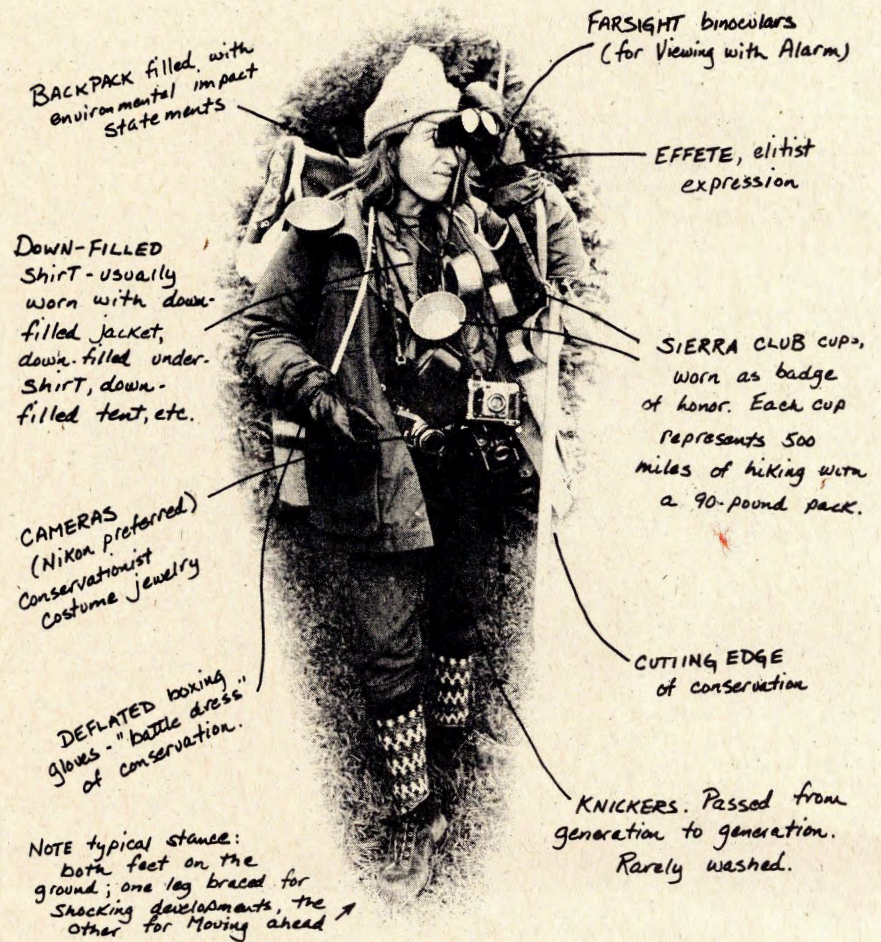 BACKPACK filled with
environmental impact
statements
FARSIGHT binoculars
(for Viewing with Alarm)
EFFETE, elitist
expression
DOWN-FILLED
Shirt - usually
worn with down-
filled jacket,
down-filled under-
shirt, down-
filled tent, etc.
SIERRA CLUB cups,
worn as badge
of honor. Each cup
represents 500
miles of hiking with
a 90-pound pack.
CAMERAS
(Nikon preferred)
Conservationist
Costume jewelry
CUTTING EDGE
of conservation
DEFLATED boxing
gloves - "battle dress"
of conservation.
KNICKERS. Passed from
generation to generation.
Rarely washed.
NOTE typical stance:
both feet on the
ground; one leg braced for
Shocking developments, the
other for Moving ahead